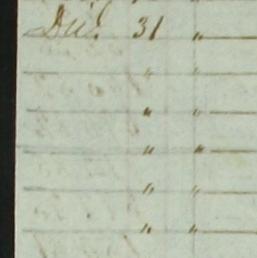 Decr. 31 "
" "
" "
" "
" "
" "